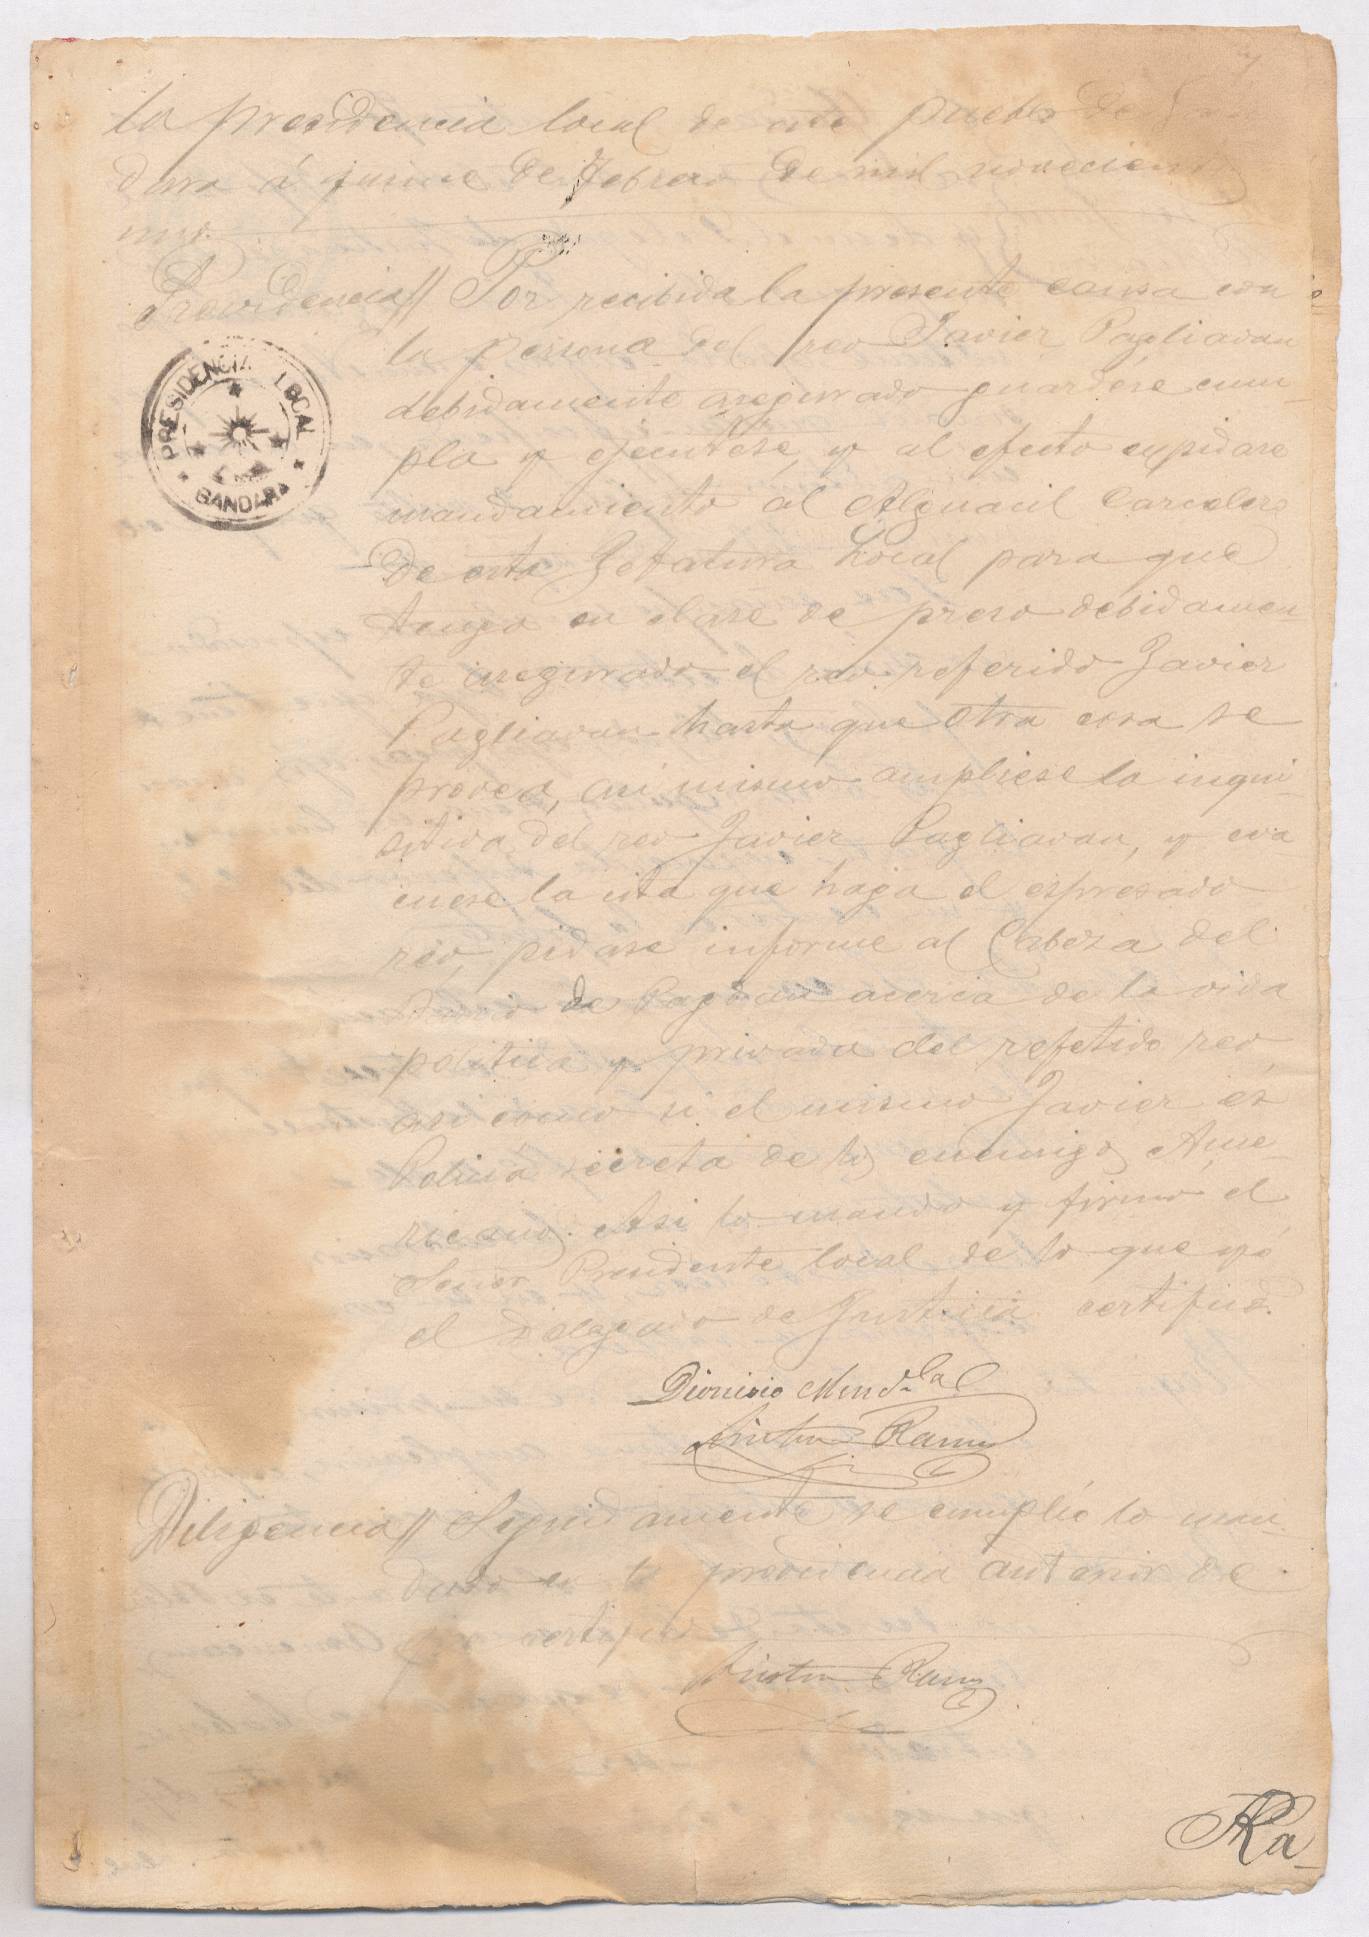 la presidencia local de este pueblo de Gan
dara á quince de Febrero de mil novecientos
uno.
Providencia// Por recibida la presente causa con
la persona del reo Javier Pagliauan
debidamente asegurado guardese cum-
pla y ejecutese, y al efecto expidase
mandamiento al Alguacil Carcelero
de esta Jefatura Local para que
tenga en clase de preso debidamen-
te asegurado el reo referido Javier
Pagliauan hasta que otra cosa se
provea, asi mismo ampliese la inqui-
sitiva del reo Javier Pagliauan, y eva-
cuese la cita que haga el espresado
reo, pidase informe al Cabeza del
Barrio de acerca de la vida
politica y privada del refetido reo
asi como si el mismo Javier es
Policia secreta de los enemigos Ame-
ricanos. Asi lo mando y firmo el
Señor Presidente local de lo que yo
el Delegado de Justicia certifico.
Dionicio
Ramos
Diligencia// Seguidamente se cumplio lo man-
dado en la providencia anterior de
que certifico
Ramos
PRESIDENCIA LOCAL
GANDARA
Ra-